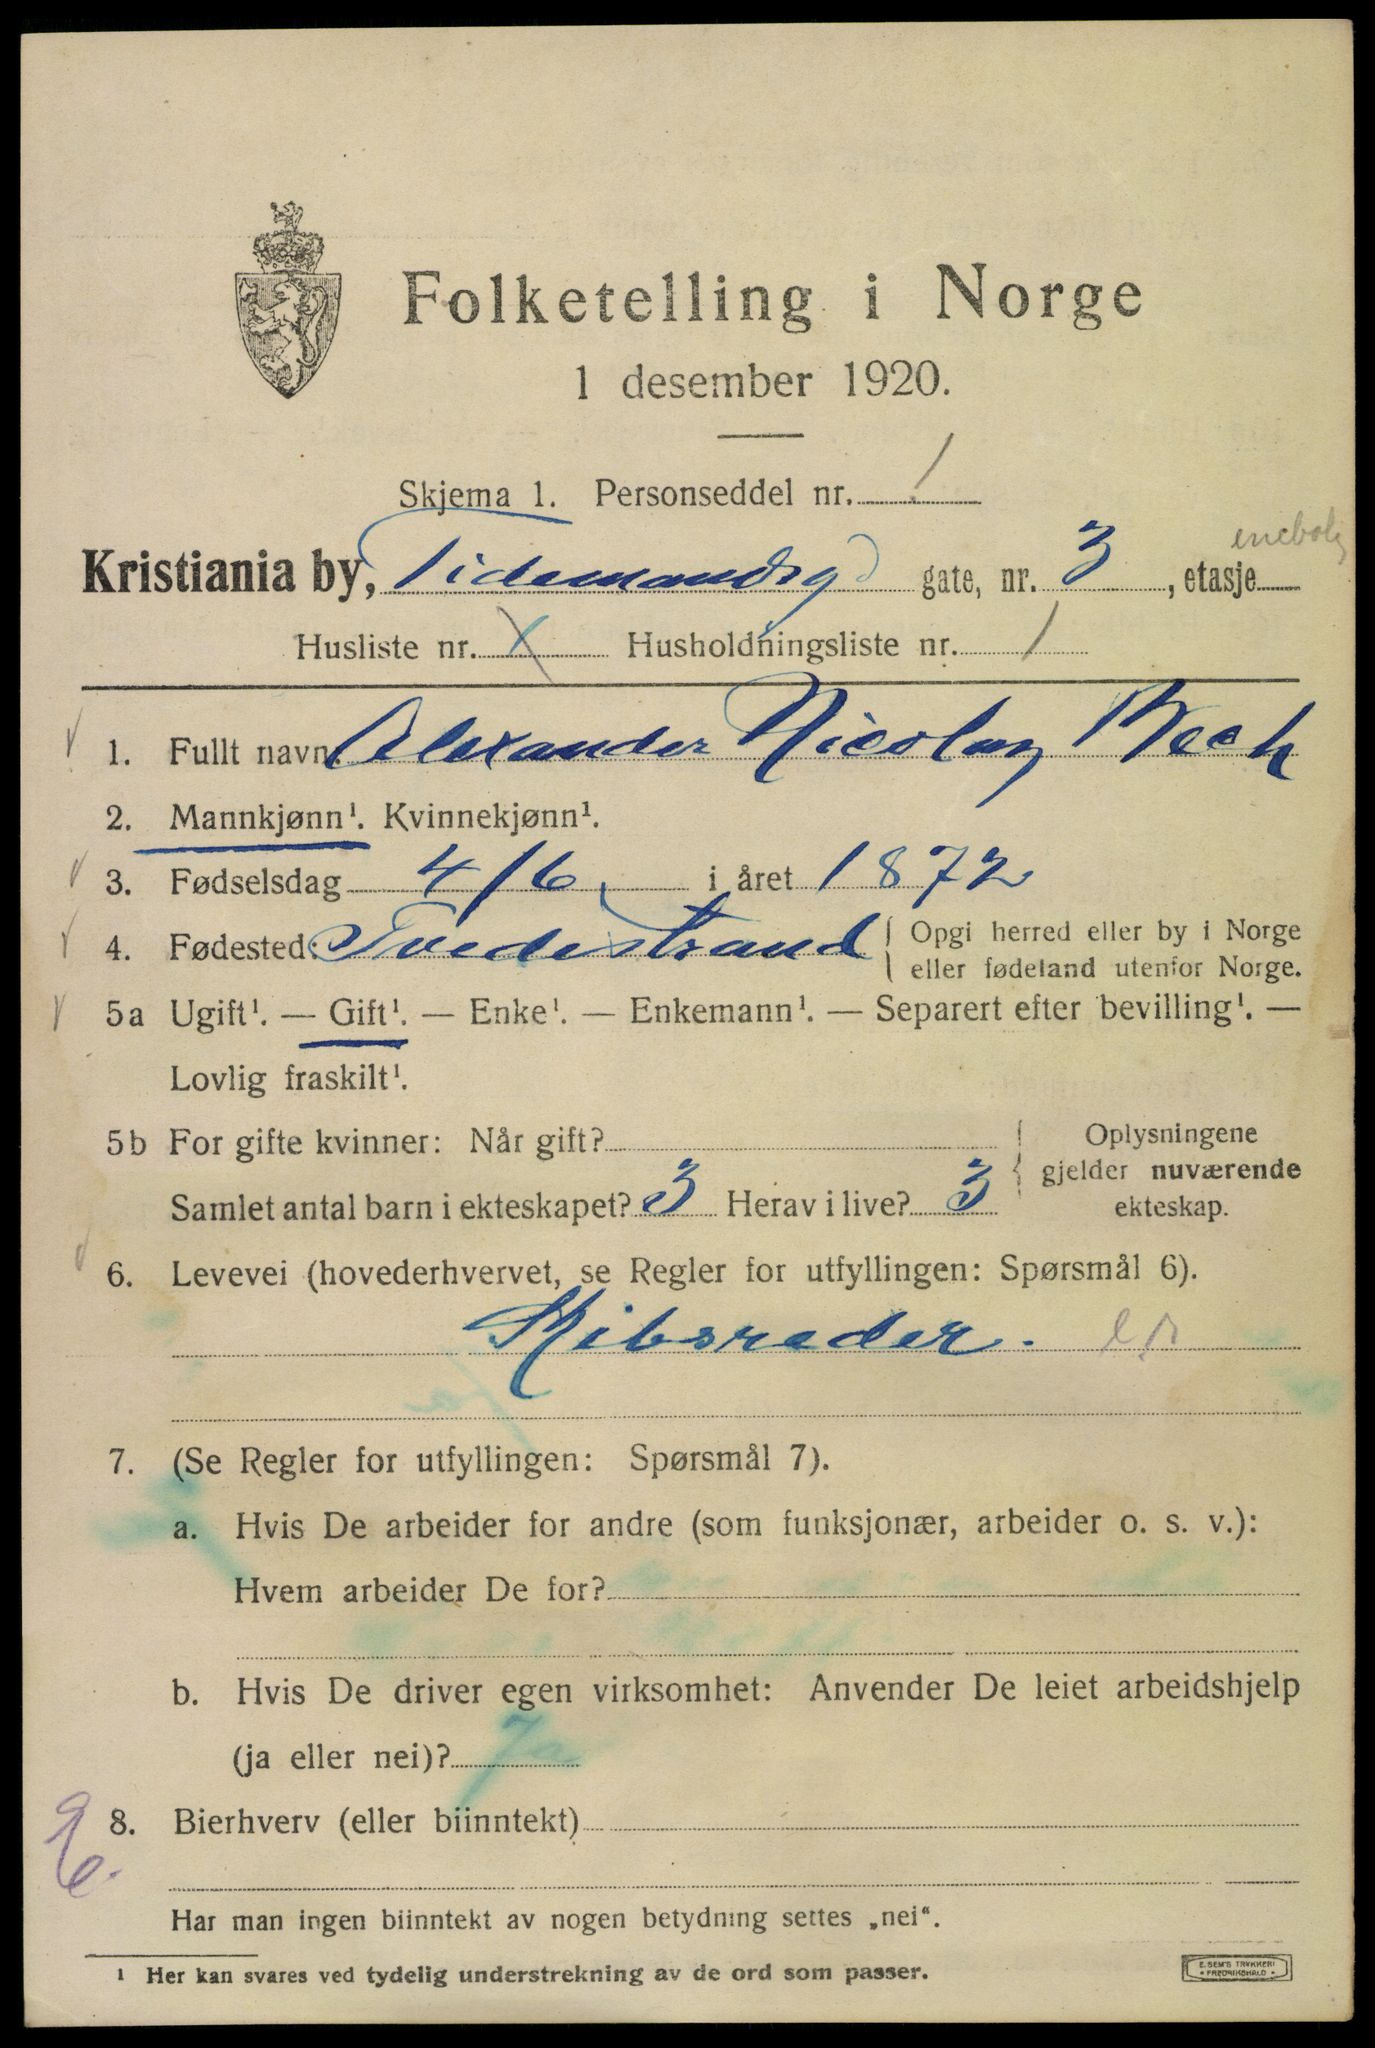 Folketelling i Norge
1 desember 1920.
Skjema 1. Personseddel nr. 1
Kristiania by, Tidemandsg gate, nr. 3, etasje enebolig
Husliste nr. X Husholdningsliste nr. 1
1. Fullt navn Alexander Nicolay Bech
2. Mannkjønn¹. Kvinnekjønn¹.
3. Fødselsdag 4/6 i året 1872
4. Fødested: Tvedestrand Opgi herred eller by i Norge
eller fødeland utenfor Norge.
5a Ugift¹. — Gift¹. — Enke¹. — Enkemann¹. — Separert efter bevilling¹. —
Lovlig fraskilt¹.
5b For gifte kvinner: Når gift? Oplysningene
gjelder nuværende
Samlet antal barn i ekteskapet? 3 Herav i live? 3 ekteskap.
6. Levevei (hovederhvervet, se Regler for utfyllingen: Spørsmål 6).
Skibsreder.
7. (Se Regler for utfyllingen: Spørsmål 7).
a. Hvis De arbeider for andre (som funksjonær, arbeider o. s. v.):
Hvem arbeider De for?
b. Hvis De driver egen virksomhet: Anvender De leiet arbeidshjelp
(ja eller nei)? Ja
8. Bierhverv (eller biinntekt)
Har man ingen biinntekt av nogen betydning settes „nei“.
¹ Her kan svares ved tydelig understrekning av de ord som passer.
E. SEM'S TRYKKERI
FREDRIKSHALD